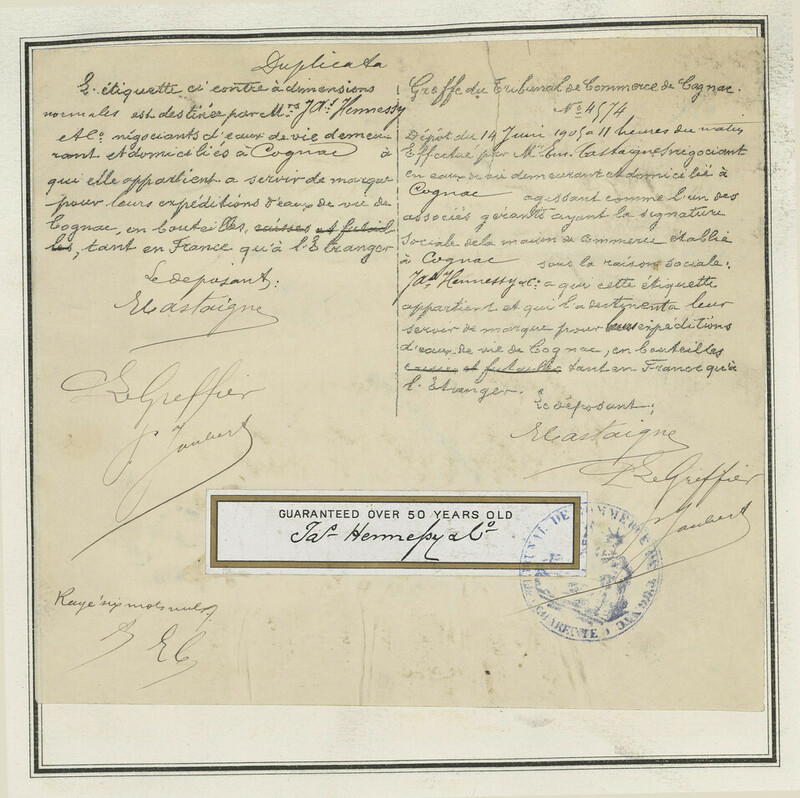 Duplicata
L'étiquette ci contre à dimensions
normales est destinée par Mrs Jas Hennessy
& Co négociants d'eaux de vie demeu-
rant et domiciliés à Cognac à
qui elle appartient a servir de marque
pour leurs expéditions d'eaux de vie de
Cognac, en bouteilles, caisses et futail-
les, tant en France qu'à l'Etranger
Le déposant:
E Castaigne
Le Greffier
Joubert
Greffe du Tribunal de Commerce de Cognac.
No 4574
Dépôt du 14 Juin 1905 à 11 heures du matin
Effectué par Mr Em. Castaigne négociant
en eaux de vie demeurant et domicilié à
Cognac agissant comme l'un des
associés gérants ayant la signature
sociale de la maison de Commerce établie
à Cognac sous la raison sociale:
Jas Hennessy & Co a qui cette étiquette
appartient et qui l'a destinent a leur
servir de marque pour leurs expéditions
d'eaux de vie de Cognac, en bouteilles
caisses et futailles tant en France qu'à
l'Etranger.
Le déposant:
E Castaigne
Le Greffier
Joubert
GUARANTEED OVER 50 YEARS OLD
Jas Hennessy & Co
TRIBUNAL DE COMMERCE DE
COGNAC
CHARENTE
Rayé six mots nuls
J EC